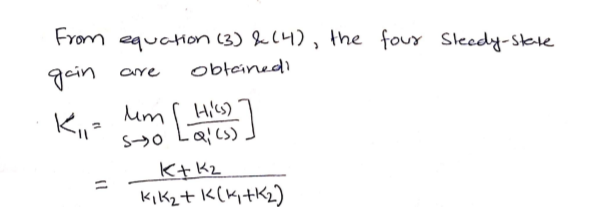 From equation (3) & (4), the four Steady-State
gain are obtained:
K₁₁ = lim s→0 [ H₁'(s) / Q₁'(s) ]
= K+K₂ / K₁K₂ + K(K₁+K₂)